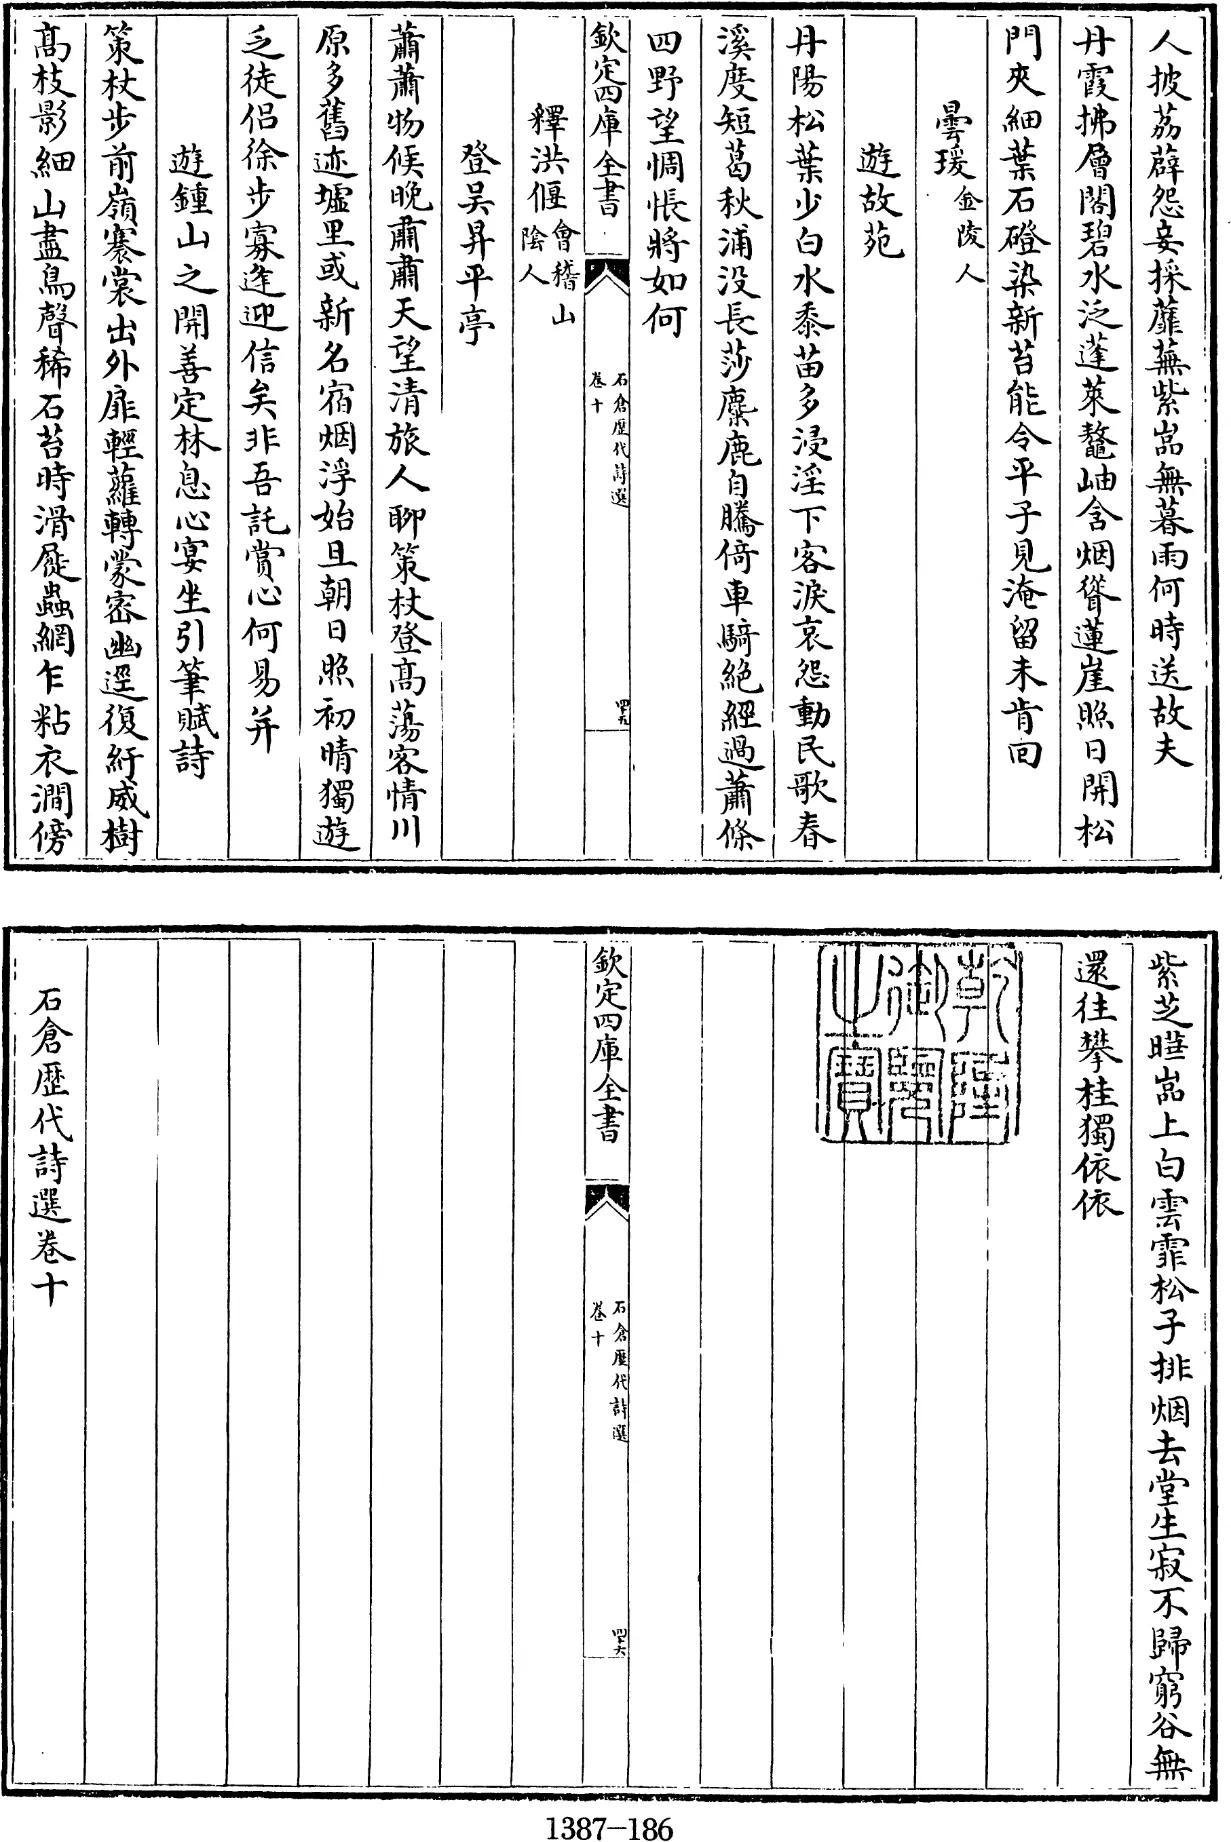 人披荔薜怨妾採蘼蕪紫嵓無暮雨何時送故夫
丹霞拂層閣碧水泛蓬萊鼇岫含烟聳蓮崖照日開松
門夾細葉石磴染新苔能令平子見淹留未肯回
曇瑗金陵人
遊故苑
丹陽松葉少白水黍苗多浸淫下客淚哀怨動民歌春
溪度短葛秋浦没長莎麋鹿自騰倚車騎絶經過蕭條
四野望惆悵將如何
欽定四庫全書
石倉歴代詩選
卷十
四十五
釋洪偃會稽山陰人
登吴昇平亭
蕭蕭物候晚肅肅天望清旅人聊策杖登髙蕩客情川
原多舊迹墟里或新名宿烟浮始旦朝日照初晴獨遊
乏徒侣徐步寡逢迎信矣非吾託賞心何易并
遊鍾山之開善定林息心宴坐引筆賦詩
策杖步前嶺褰裳出外扉輕蘿轉蒙密幽逕復紆威樹
髙枝影細山盡鳥聲稀石苔時滑屣蟲網乍粘衣澗傍
紫芝曄嵓上白雲霏松子排烟去堂生寂不歸窮谷無
還往攀桂獨依依
乾隆御覽之寶
欽定四庫全書
石倉歴代詩選
卷十
四十六
石倉歴代詩選卷十
1387-186